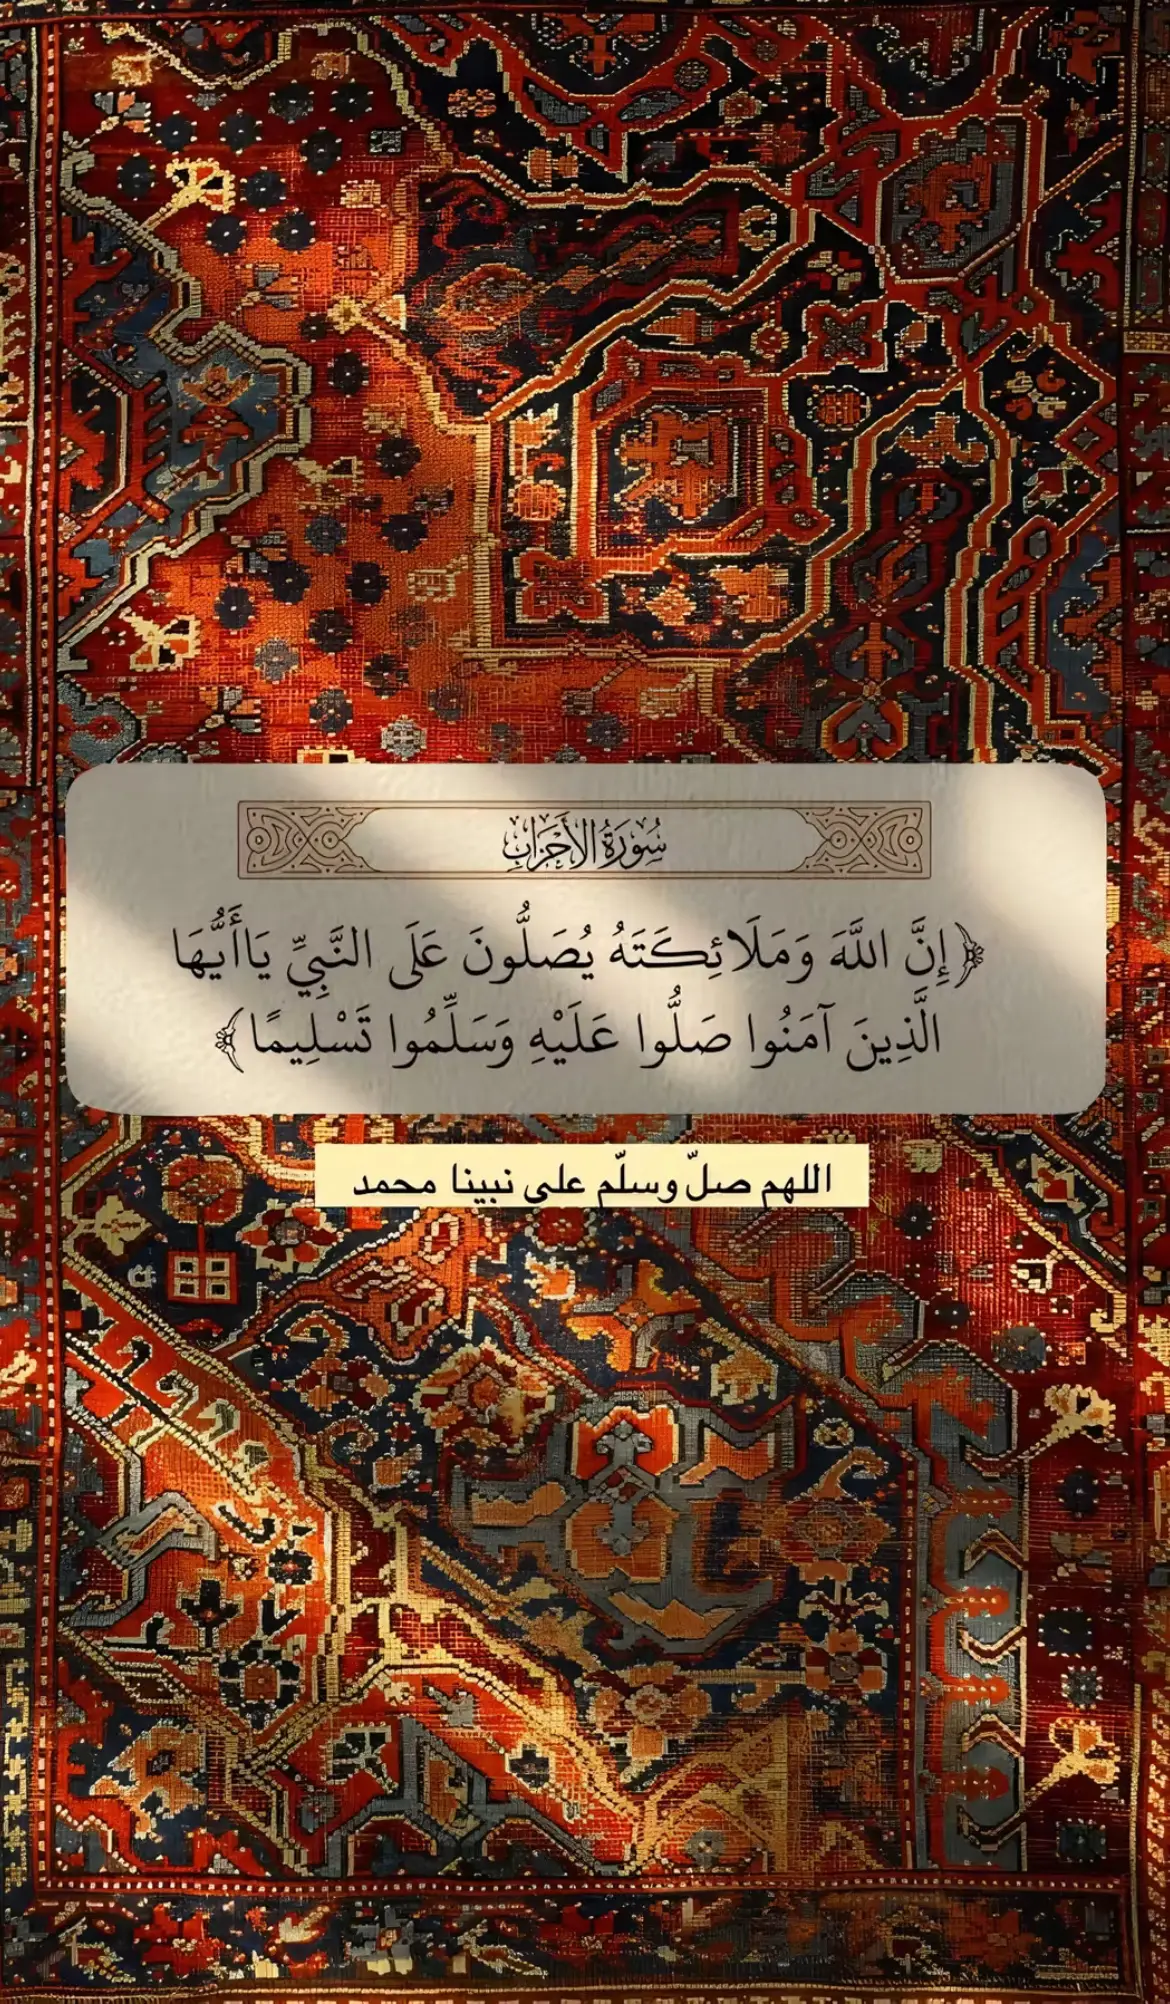 سُورَةُ الأَحْزَابِ
﴿إِنَّ اللَّهَ وَمَلَائِكَتَهُ يُصَلُّونَ عَلَى النَّبِيِّ يَاأَيُّهَا
الَّذِينَ آمَنُوا صَلُّوا عَلَيْهِ وَسَلِّمُوا تَسْلِيمًا﴾
اللهم صلّ وسلّم على نبينا محمد